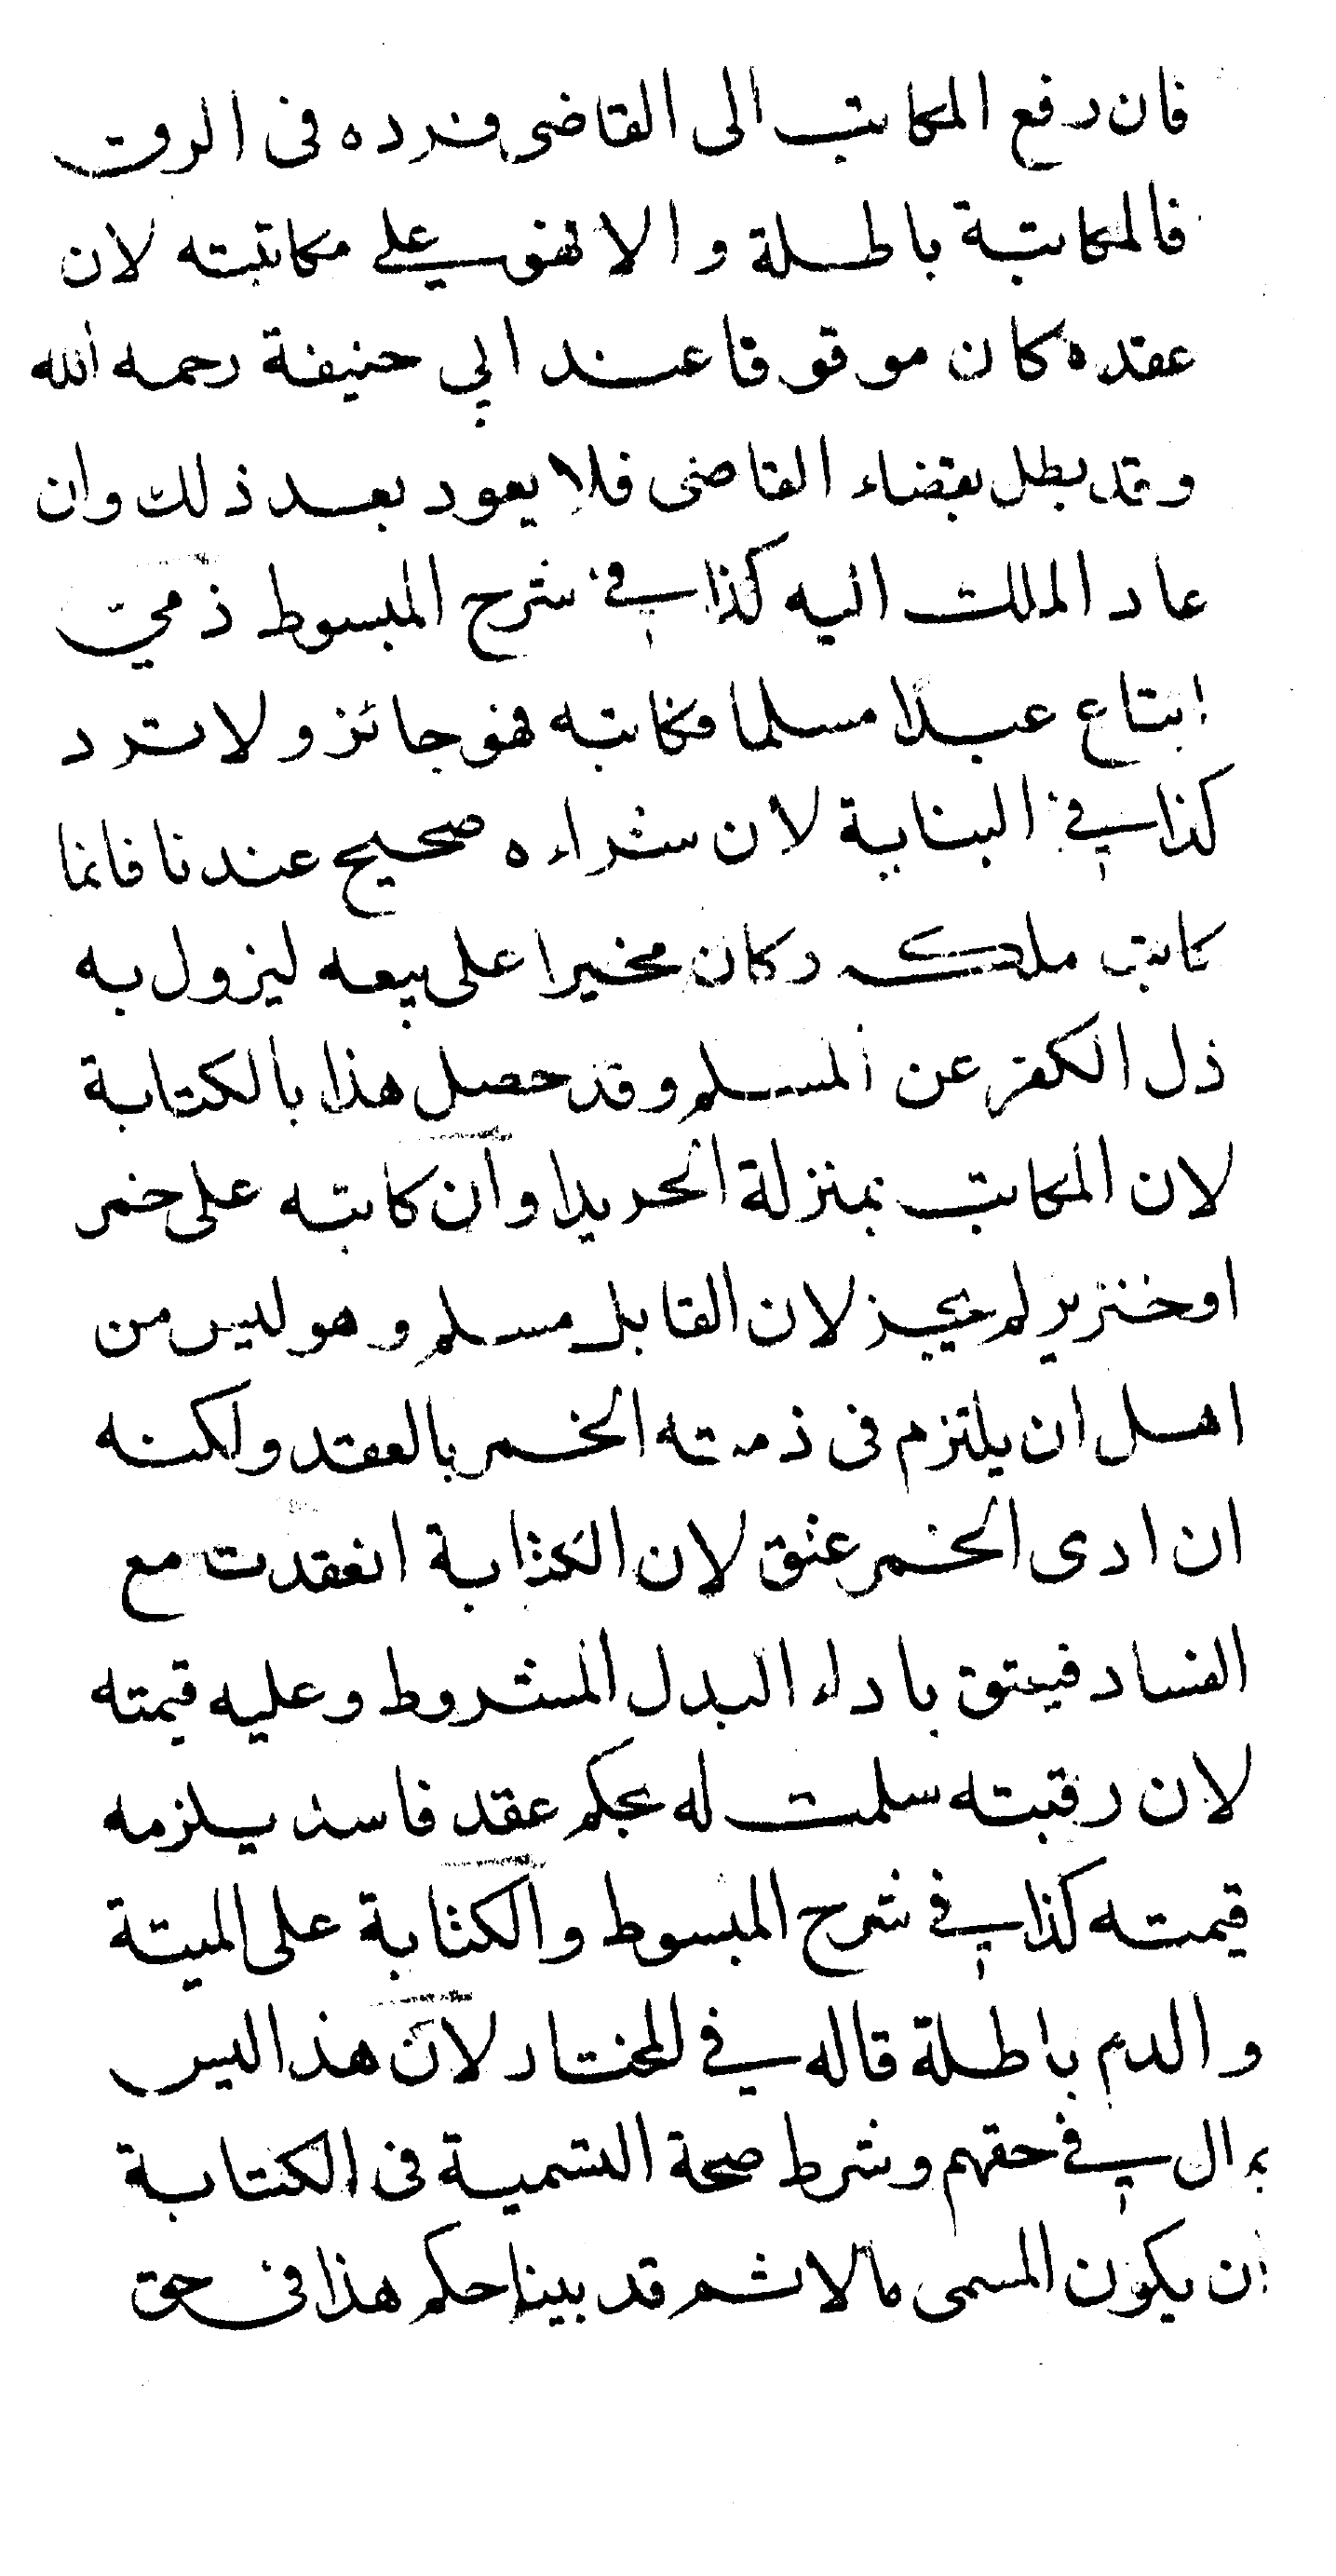 فان رفع المكاتب الى القاضى فرده فى الرق
فالمكاتبة باطلة والا فهو على مكاتبته لان
عقده كان موقوفا عند ابي حنيفة رحمه الله
وقد بطل بقضاء القاضى فلا يعود بعد ذلك وان
عاد الملك اليه كذا في شرح المبسوط ذمي
ابتاع عبدا مسلما فكاتبه فهو جائز ولا ترد
كذا في البناية لان شراءه صحيح عندنا فانما
كاتب ملكه وكان مخيرا على بيعه ليزول به
ذل الكفر عن المسلم وقد حصل هذا بالكتابة
لان المكاتب بمنزلة الحر يدا وان كاتبه على خمر
او خنزير لم يجز لان القابل مسلم وهو ليس من
اهل ان يلتزم فى ذمته الخمر بالعقد ولكنه
ان ادى الخمر عتق لان الكتابة انعقدت مع
الفساد فيعتق باداء البدل المشروط وعليه قيمته
لان رقبته سلمت له بحكم عقد فاسد يلزمه
قيمته كذا في شرح المبسوط والكتابة على الميتة
والدم باطلة قاله في المختار لان هذا ليس
بمال في حقهم وشرط صحة التسمية فى الكتابة
ان يكون المسمى مالا ثم قد بينا حكم هذا فى حق